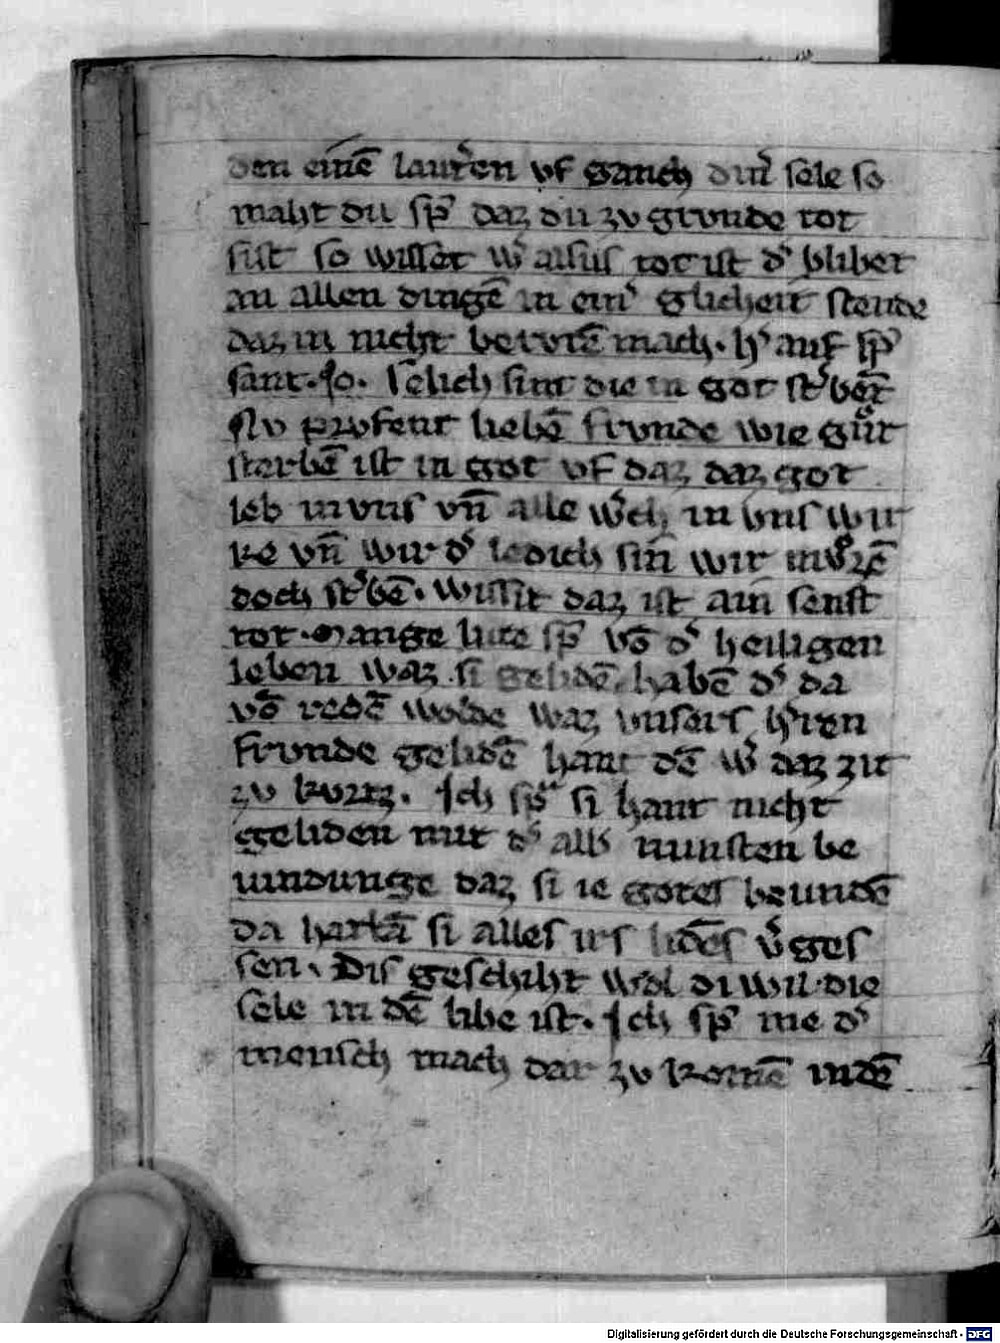 den einē lautˀen vf ganch dinˀ sele so
maht du spˀ daz du zv grvnde tot
sist so wisset wˀ alsus tot ist dˀ blibet
an allen dingē in einˀ glicheit stende
daz in nicht betrvbē mach. hˀ auf spˀ
sant. Jo. Selich sint die in got stˀbēt
Nv prvfent liebē frvnde wie gůt
sterbē ist in got vf daz daz got
leb in vns vn̄ alle wˀch in vns wir
ke vn̄ wir dˀ ledich sin̄ wir mvͦzē
doch stˀbē. wissit daz ist ain senft
tot. Mange lute spˀ vō dˀ heiligen
leben waz si gelidē habē dˀ da
vō redē wolde waz vnsers hˀren
frvnde gelidē hant dē wˀ daz zit
zv kvrtz. Ich spˀ si hant nicht
geliden mit dˀ alls minsten be
uindunge daz si ie gotes beundē
da hattā si alles irs lidēs vˀges
sen. Dis geschiht wol di wil die
sele in dē libe ist. Ich spˀ me dˀ
mensch mach dar zv komē in dē
Digitalisierung gefördert durch die Deutsche Forschungsgemeinschaft - DFG